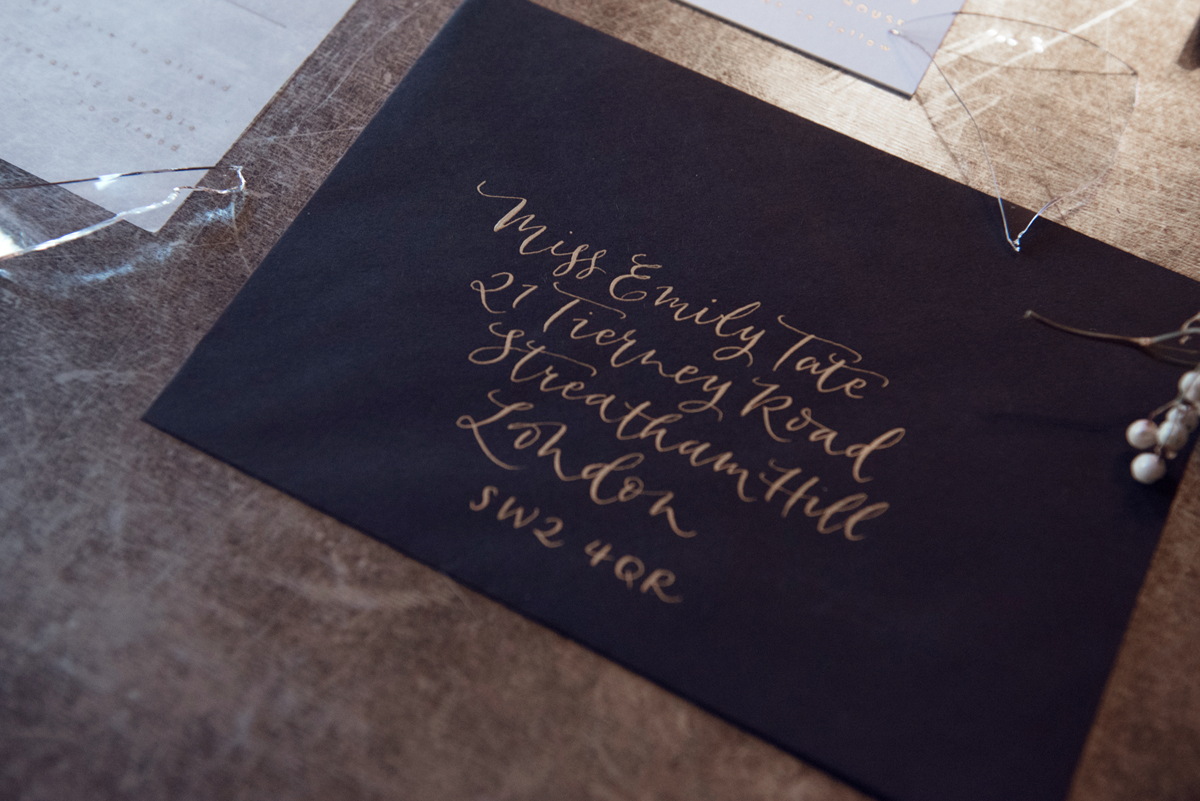 Miss Emily Tate
21 Tierney Road
Streatham Hill
London
SW2 4QR